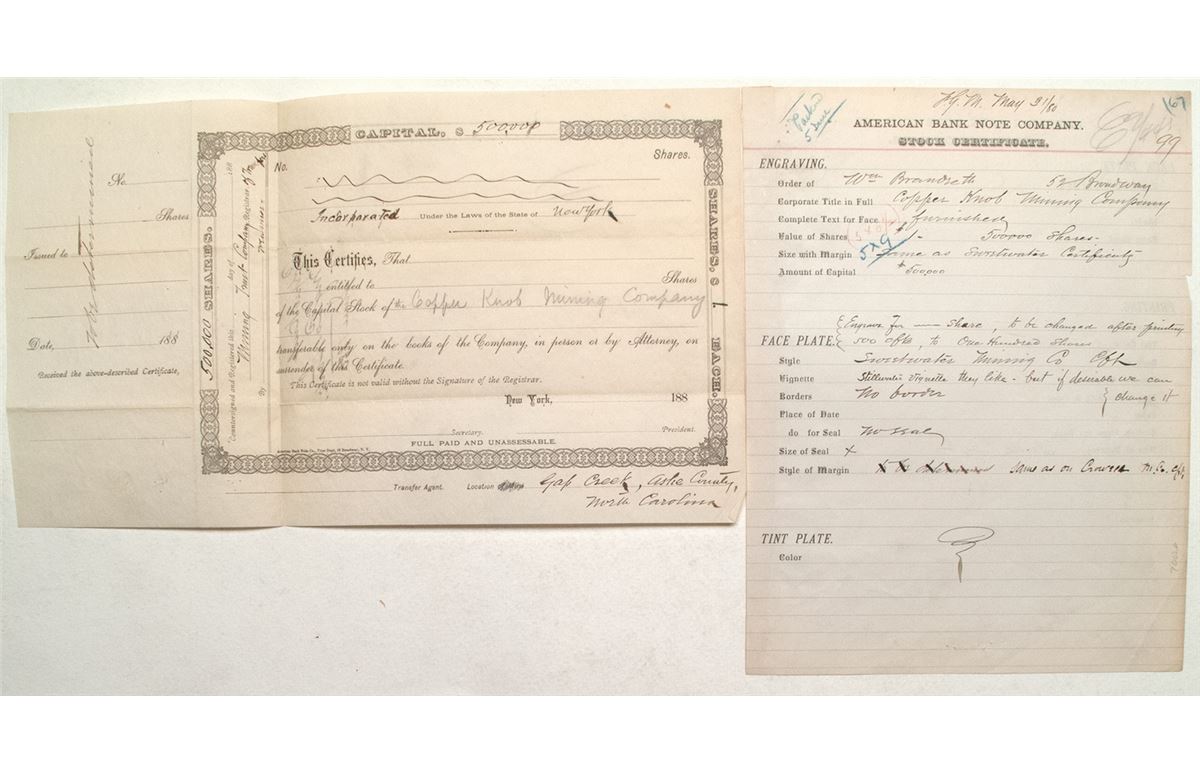 CAPITAL, $ 500,000
No.
Shares.
Incorporated Under the Laws of the State of New York
This Certifies, That
is entitled to Shares
of the Capital Stock of the Copper Knob Mining Company
transferable only on the books of the Company, in person or by Attorney, on
surrender of this Certificate.
This Certificate is not valid without the Signature of the Registrar.
New York, 188
Secretary. President.
FULL PAID AND UNASSESSABLE.
Transfer Agent. Location Gap Creek, Ashe County,
North Carolina
500,000 SHARES.
SHARES, $ 1. EACH.
Countersigned and Registered this day of 188
Mining Trust Company Registrar of
By
No.
Shares
Issued to
Date, 188
Received the above-described Certificate,
To be
May 21/80
167
5 June
AMERICAN BANK NOTE COMPANY.
STOCK CERTIFICATE.
99
ENGRAVING.
Order of Wm Brandreth 52 Broadway
Corporate Title in Full Copper Knob Mining Company
Complete Text for Face furnished
Value of Shares $1- 500,000 Shares-
Size with Margin 5x9 Same as Sweetwater Certificate
Amount of Capital $500,000
Engrave for Share, to be changed after printing
FACE PLATE. 500 Cfts, to One Hundred Shares
Style Sweetwater Mining Co Cft
Vignette Stillwater Vignette they like - but if desirable we can
change it
Borders No border
Place of Date
do for Seal No seal
Size of Seal x
Style of Margin same as on M. Co. Cft
TINT PLATE.
Color